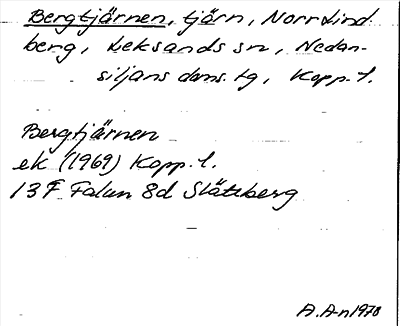 Bergtjärnen, tjärn, Norr Lind
berg, Leksands sn, Nedan-
siljans doms. tg, Kopp. l.
Bergtjärnen
ek (1969) Kopp. l.
13 F Falun 8d Slätberg
A. A-n 1970